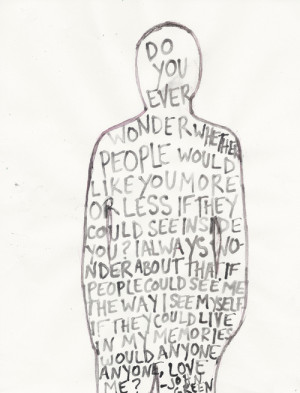 DO
YOU
EVER
WONDER WHETHER
PEOPLE WOULD
LIKE YOU MORE
OR LESS IF THEY
COULD SEE INSIDE
YOU? I ALWAYS WO-
NDER ABOUT THAT. IF
PEOPLE COULD SEE ME
THE WAY I SEE MYSELF
IF THEY COULD LIVE
IN MY MEMORIES
WOULD ANYONE
ANYONE, LOVE
ME? -JOHN
GREEN